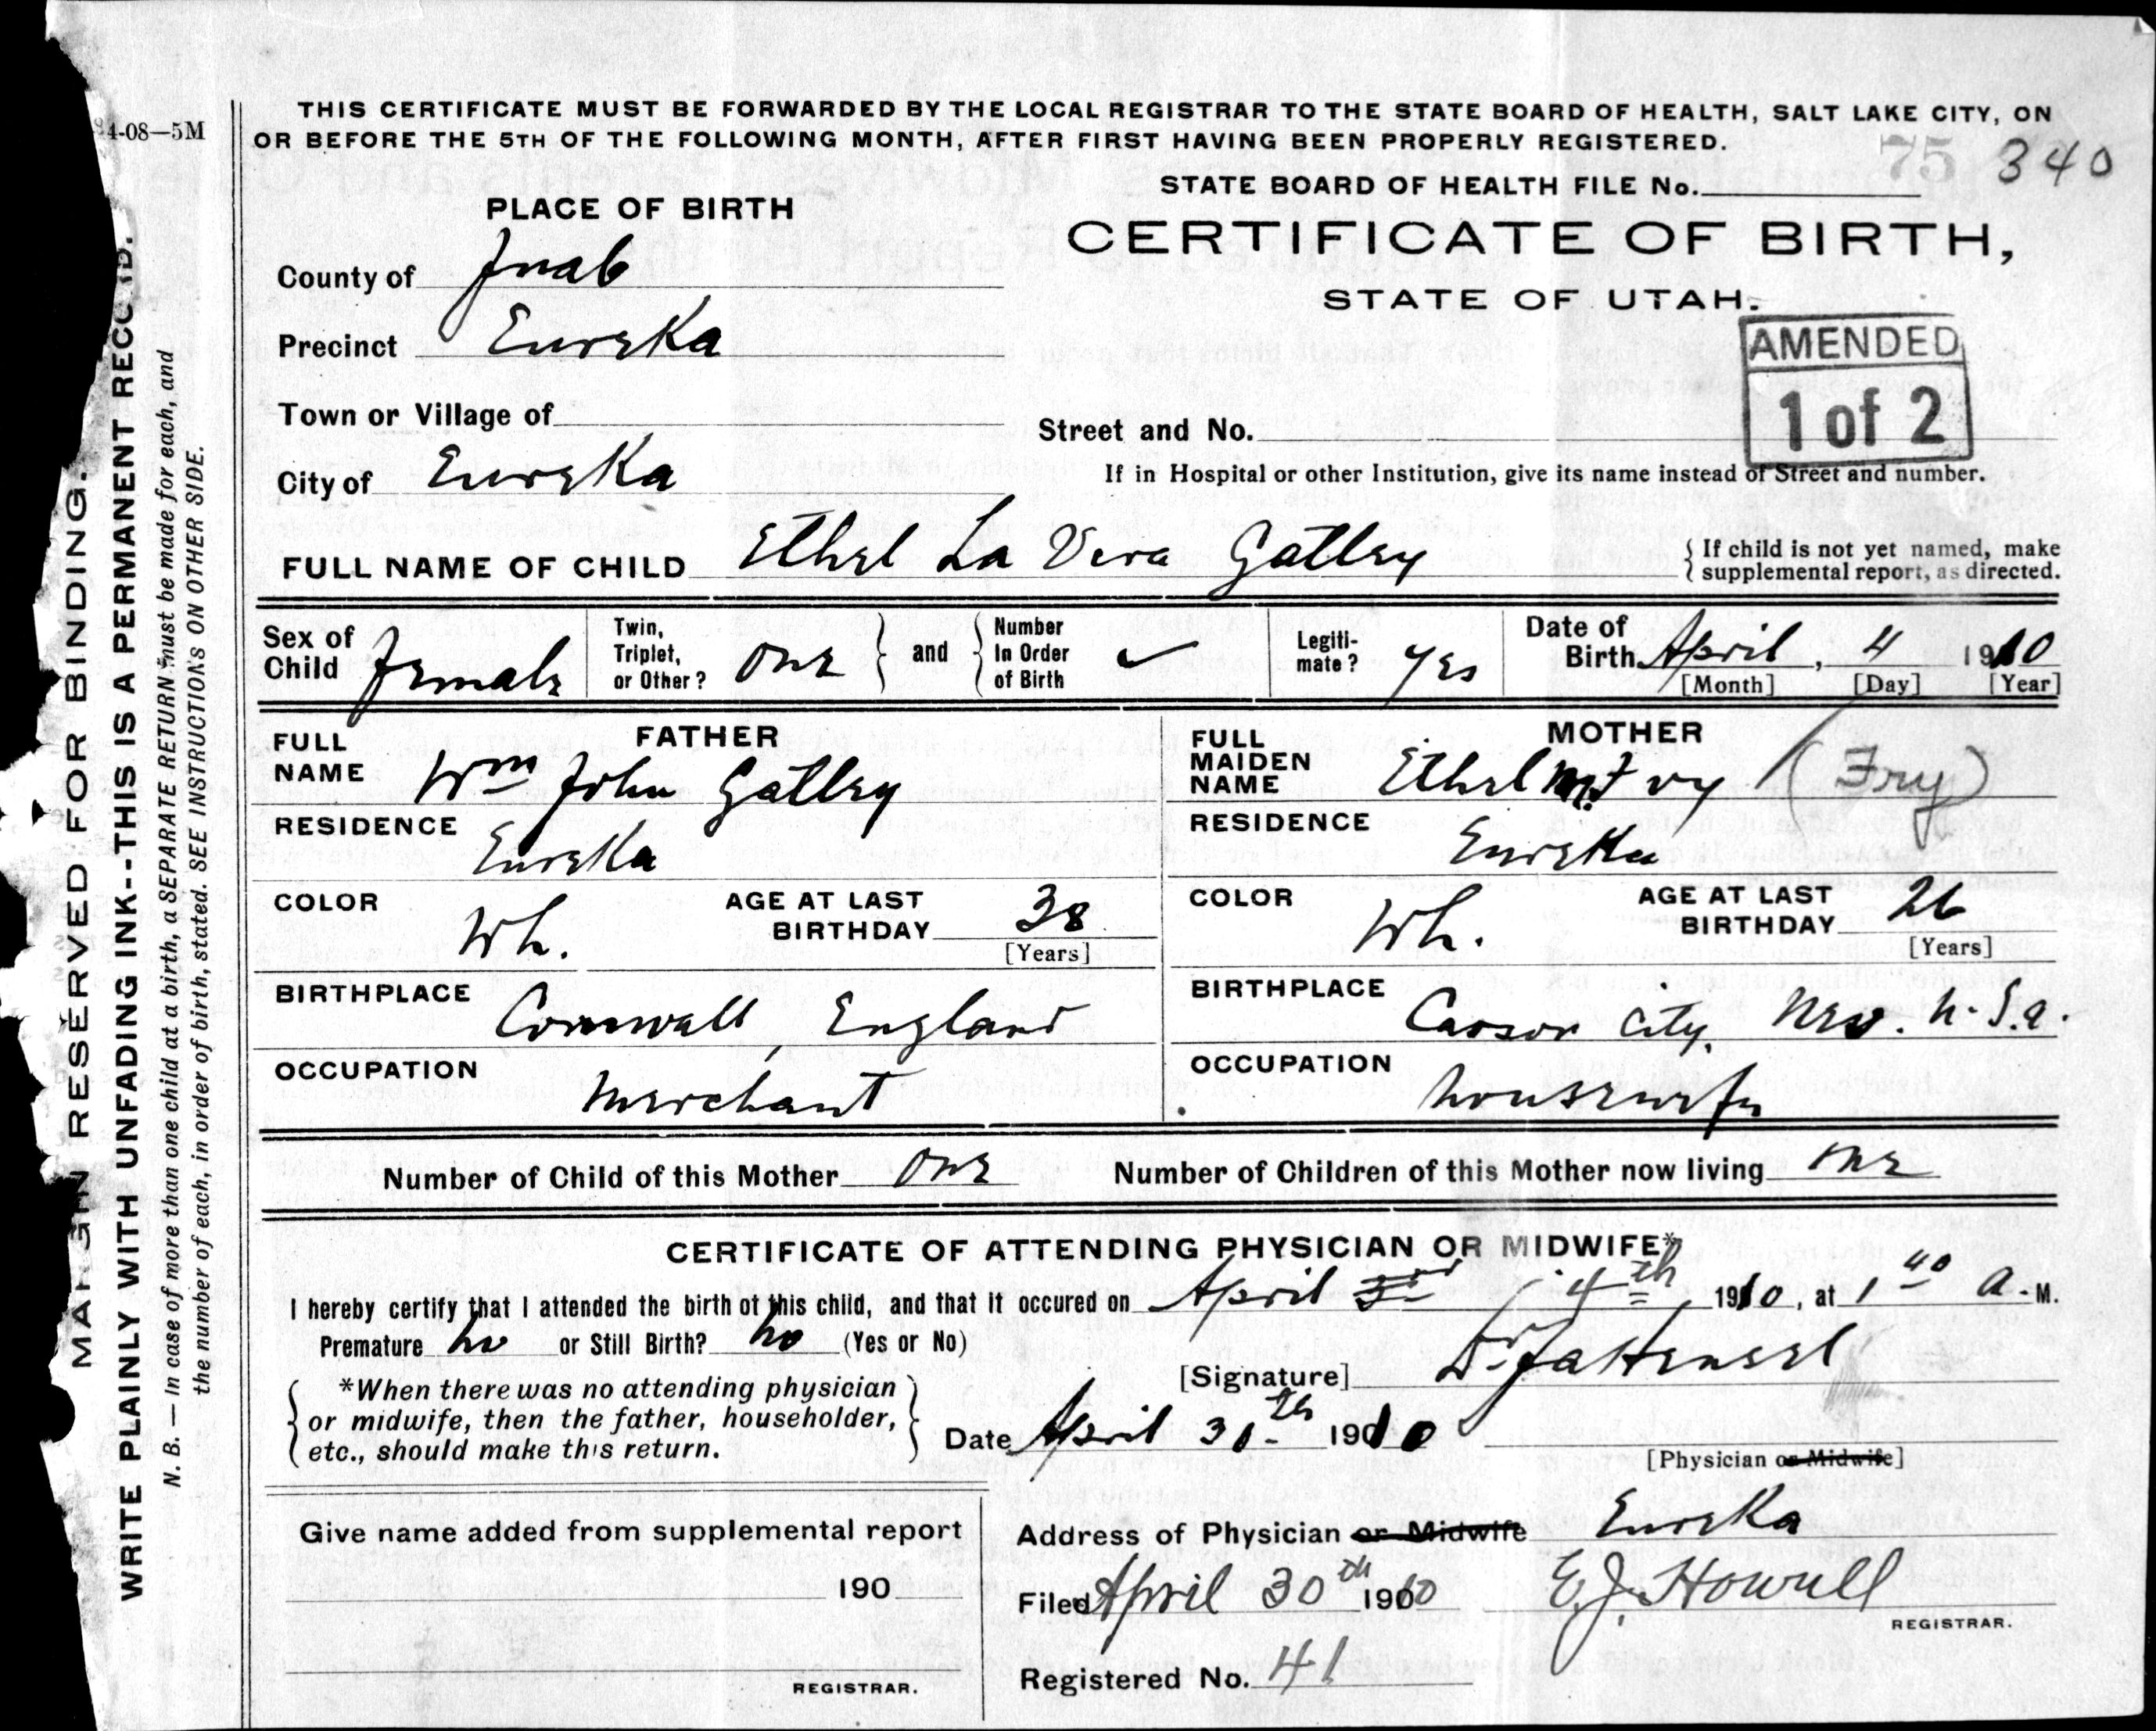 4-08—5M
THIS CERTIFICATE MUST BE FORWARDED BY THE LOCAL REGISTRAR TO THE STATE BOARD OF HEALTH, SALT LAKE CITY, ON
OR BEFORE THE 5TH OF THE FOLLOWING MONTH, AFTER FIRST HAVING BEEN PROPERLY REGISTERED.
75 340
STATE BOARD OF HEALTH FILE No.
PLACE OF BIRTH
CERTIFICATE OF BIRTH,
STATE OF UTAH.
AMENDED
1 of 2
County of Juab
Precinct Eureka
Town or Village of
Street and No.
City of Eureka
If in Hospital or other Institution, give its name instead of Street and number.
FULL NAME OF CHILD Ethel La Vera Gatley
{ If child is not yet named, make
supplemental report, as directed.
Sex of Child female
Twin, Triplet, or Other? one } and { Number In Order of Birth ✓
Legiti-mate? yes
Date of Birth April, 4 1910
[Month] [Day] [Year]
FATHER
FULL NAME Wm John Gatley
RESIDENCE Eureka
COLOR Wh. AGE AT LAST BIRTHDAY 38
[Years]
BIRTHPLACE Cornwall, England
OCCUPATION merchant
MOTHER
FULL MAIDEN NAME Ethel M. Fry (Fry)
RESIDENCE Eureka
COLOR Wh. AGE AT LAST BIRTHDAY 26
[Years]
BIRTHPLACE Carson City, Nev. U.S.a.
OCCUPATION housewife
Number of Child of this Mother one Number of Children of this Mother now living one
CERTIFICATE OF ATTENDING PHYSICIAN OR MIDWIFE*
I hereby certify that I attended the birth of this child, and that it occured on April 4th, 1910, at 1 40 a. M.
Premature no or Still Birth? no (Yes or No)
{ *When there was no attending physician
or midwife, then the father, householder,
etc., should make this return. }
[Signature] Dr.
Date April 30th 1910
[Physician or Midwife]
Address of Physician or Midwife Eureka
Filed April 30th 1910 E.J. Howell
REGISTRAR.
Registered No. 41
Give name added from supplemental report
190
REGISTRAR.
MARGIN RESERVED FOR BINDING.
WRITE PLAINLY WITH UNFADING INK--THIS IS A PERMANENT RECORD.
N. B. — In case of more than one child at a birth, a SEPARATE RETURN must be made for each, and
the number of each, in order of birth, stated. SEE INSTRUCTIONS ON OTHER SIDE.